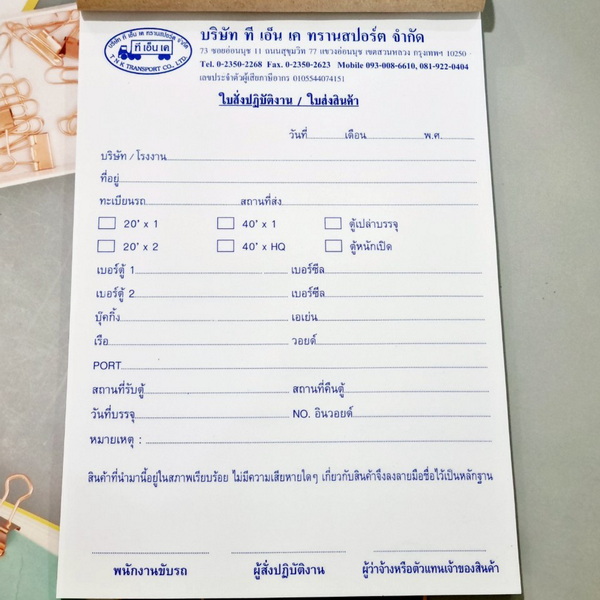 บริษัท ที เอ็น เค ทรานสปอร์ต จำกัด
ที เอ็น เค
T N K TRANSPORT CO., LTD.
บริษัท ที เอ็น เค ทรานสปอร์ต จำกัด
73 ซอยอ่อนนุช 11 ถนนสุขุมวิท 77 แขวงอ่อนนุช เขตสวนหลวง กรุงเทพฯ 10250
Tel. 0-2350-2268 Fax. 0-2350-2623 Mobile 093-008-6610, 081-922-0404
เลขประจำตัวผู้เสียภาษีอากร 0105544074151
ใบสั่งปฏิบัติงาน / ใบส่งสินค้า
วันที่ เดือน พ.ศ.
บริษัท / โรงงาน
ที่อยู่
ทะเบียนรถ สถานที่ส่ง
20' x 1 40' x 1 ตู้เปล่าบรรจุ
20' x 2 40' x HQ ตู้หนักเปิด
เบอร์ตู้ 1 เบอร์ซีล
เบอร์ตู้ 2 เบอร์ซีล
บุ๊คกิ้ง เอเย่น
เรือ วอยต์
PORT
สถานที่รับตู้ สถานที่คืนตู้
วันที่บรรจุ NO. อินวอยต์
หมายเหตุ :
สินค้าที่นำมานี้อยู่ในสภาพเรียบร้อย ไม่มีความเสียหายใดๆ เกี่ยวกับสินค้าจึงลงลายมือชื่อไว้เป็นหลักฐาน
พนักงานขับรถ ผู้สั่งปฏิบัติงาน ผู้ว่าจ้างหรือตัวแทนเจ้าของสินค้า